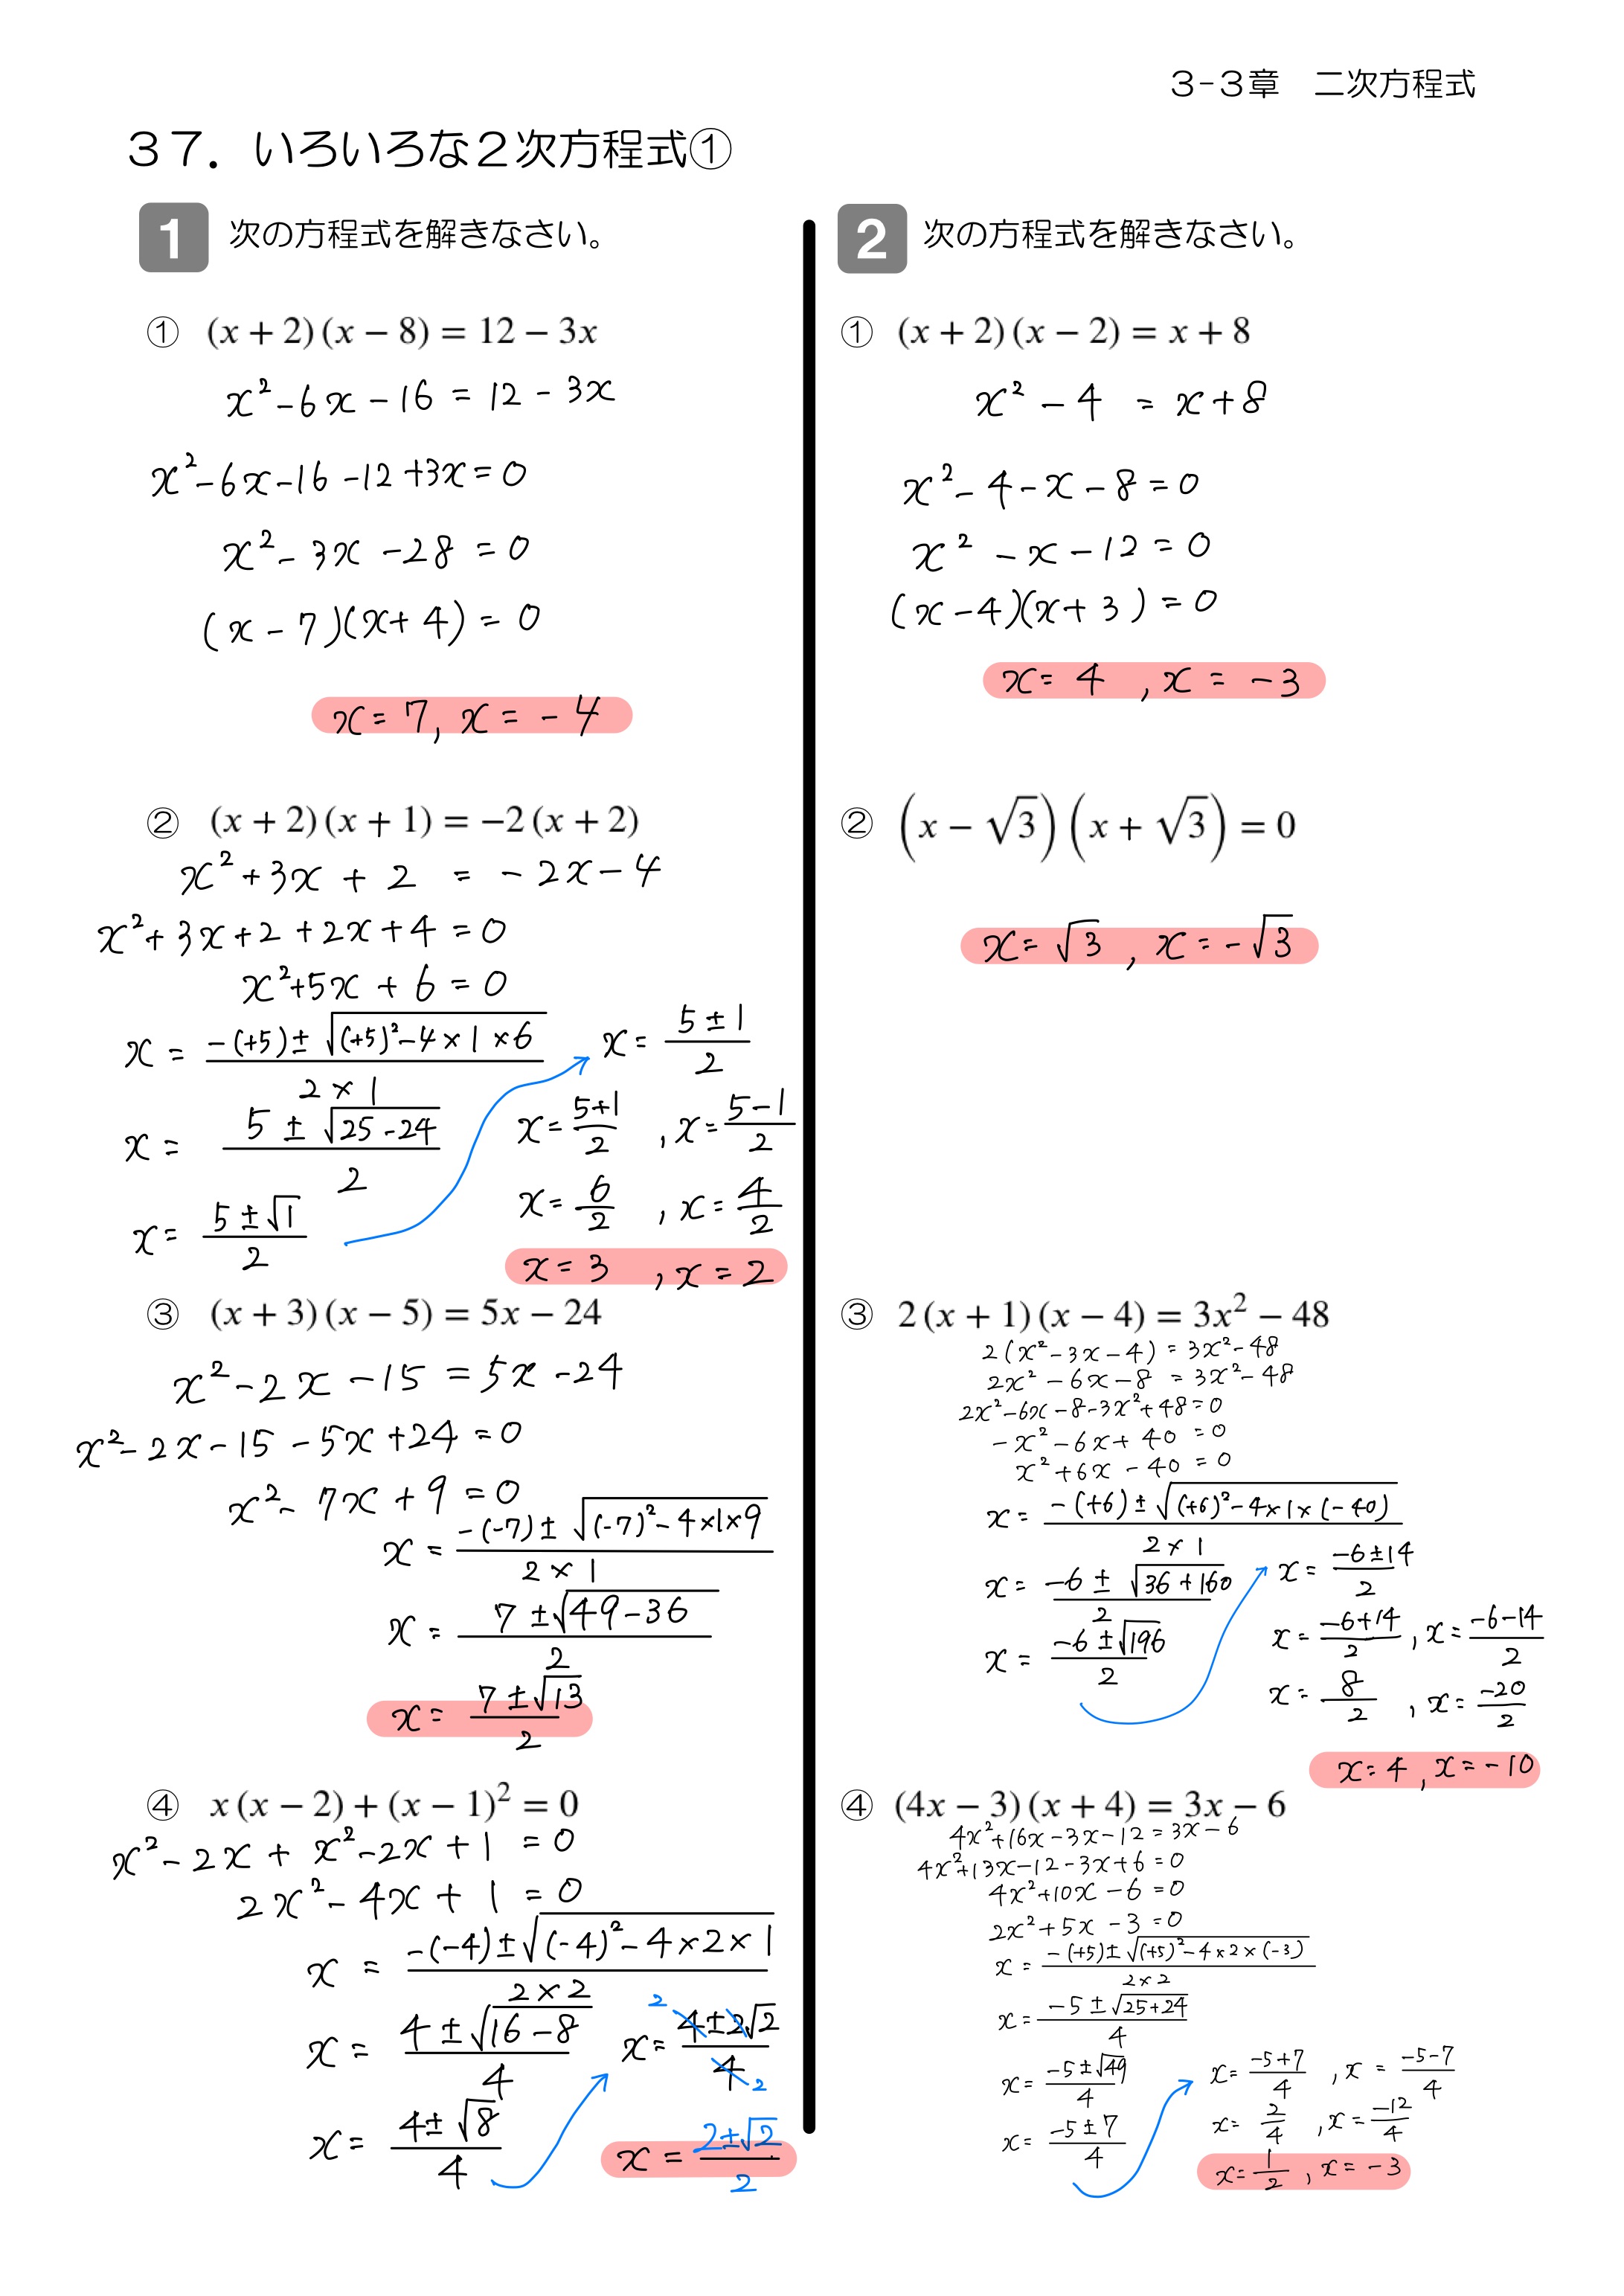 3-3章　二次方程式
37．いろいろな2次方程式①
1 次の方程式を解きなさい。
① (x + 2)(x − 8) = 12 − 3x
x² − 6x − 16 = 12 − 3x
x² − 6x − 16 − 12 + 3x = 0
x² − 3x − 28 = 0
(x − 7)(x + 4) = 0
x = 7, x = − 4
② (x + 2)(x + 1) = −2(x + 2)
x² + 3x + 2 = − 2x − 4
x² + 3x + 2 + 2x + 4 = 0
x² + 5x + 6 = 0
x = (−(+5) ± √((+5)² − 4 × 1 × 6)) / (2 × 1)
x = (5 ± √(25 − 24)) / 2
x = (5 ± √1) / 2
x = (5 ± 1) / 2
x = (5+1) / 2 , x = (5−1) / 2
x = 6/2 , x = 4/2
x = 3 , x = 2
③ (x + 3)(x − 5) = 5x − 24
x² − 2x − 15 = 5x − 24
x² − 2x − 15 − 5x + 24 = 0
x² − 7x + 9 = 0
x = (−(−7) ± √((−7)² − 4×1×9)) / (2 × 1)
x = (7 ± √(49 − 36)) / 2
x = (7 ± √13) / 2
④ x(x − 2) + (x − 1)² = 0
x² − 2x + x² − 2x + 1 = 0
2x² − 4x + 1 = 0
x = (−(−4) ± √((−4)² − 4 × 2 × 1)) / (2 × 2)
x = (4 ± √(16 − 8)) / 4
x = (4 ± √8) / 4
2
x = (4 ± 2√2) / 4
2
x = (2 ± √2) / 2
2 次の方程式を解きなさい。
① (x + 2)(x − 2) = x + 8
x² − 4 = x + 8
x² − 4 − x − 8 = 0
x² − x − 12 = 0
(x − 4)(x + 3) = 0
x = 4 , x = − 3
② (x − √3)(x + √3) = 0
x = √3 , x = − √3
③ 2(x + 1)(x − 4) = 3x² − 48
2(x² − 3x − 4) = 3x² − 48
2x² − 6x − 8 = 3x² − 48
2x² − 6x − 8 − 3x² + 48 = 0
− x² − 6x + 40 = 0
x² + 6x − 40 = 0
x = (−(+6) ± √((+6)² − 4×1×(−40))) / (2 × 1)
x = (−6 ± √(36 + 160)) / 2
x = (−6 ± √196) / 2
x = (−6 ± 14) / 2
x = (−6+14) / 2 , x = (−6−14) / 2
x = 8/2 , x = −20/2
x = 4 , x = − 10
④ (4x − 3)(x + 4) = 3x − 6
4x² + 16x − 3x − 12 = 3x − 6
4x² + 13x − 12 − 3x + 6 = 0
4x² + 10x − 6 = 0
2x² + 5x − 3 = 0
x = (−(+5) ± √((+5)² − 4 × 2 × (−3))) / (2 × 2)
x = (−5 ± √(25+24)) / 4
x = (−5 ± √49) / 4
x = (−5 ± 7) / 4
x = (−5+7) / 4 , x = (−5−7) / 4
x = 2/4 , x = −12/4
x = 1/2 , x = − 3